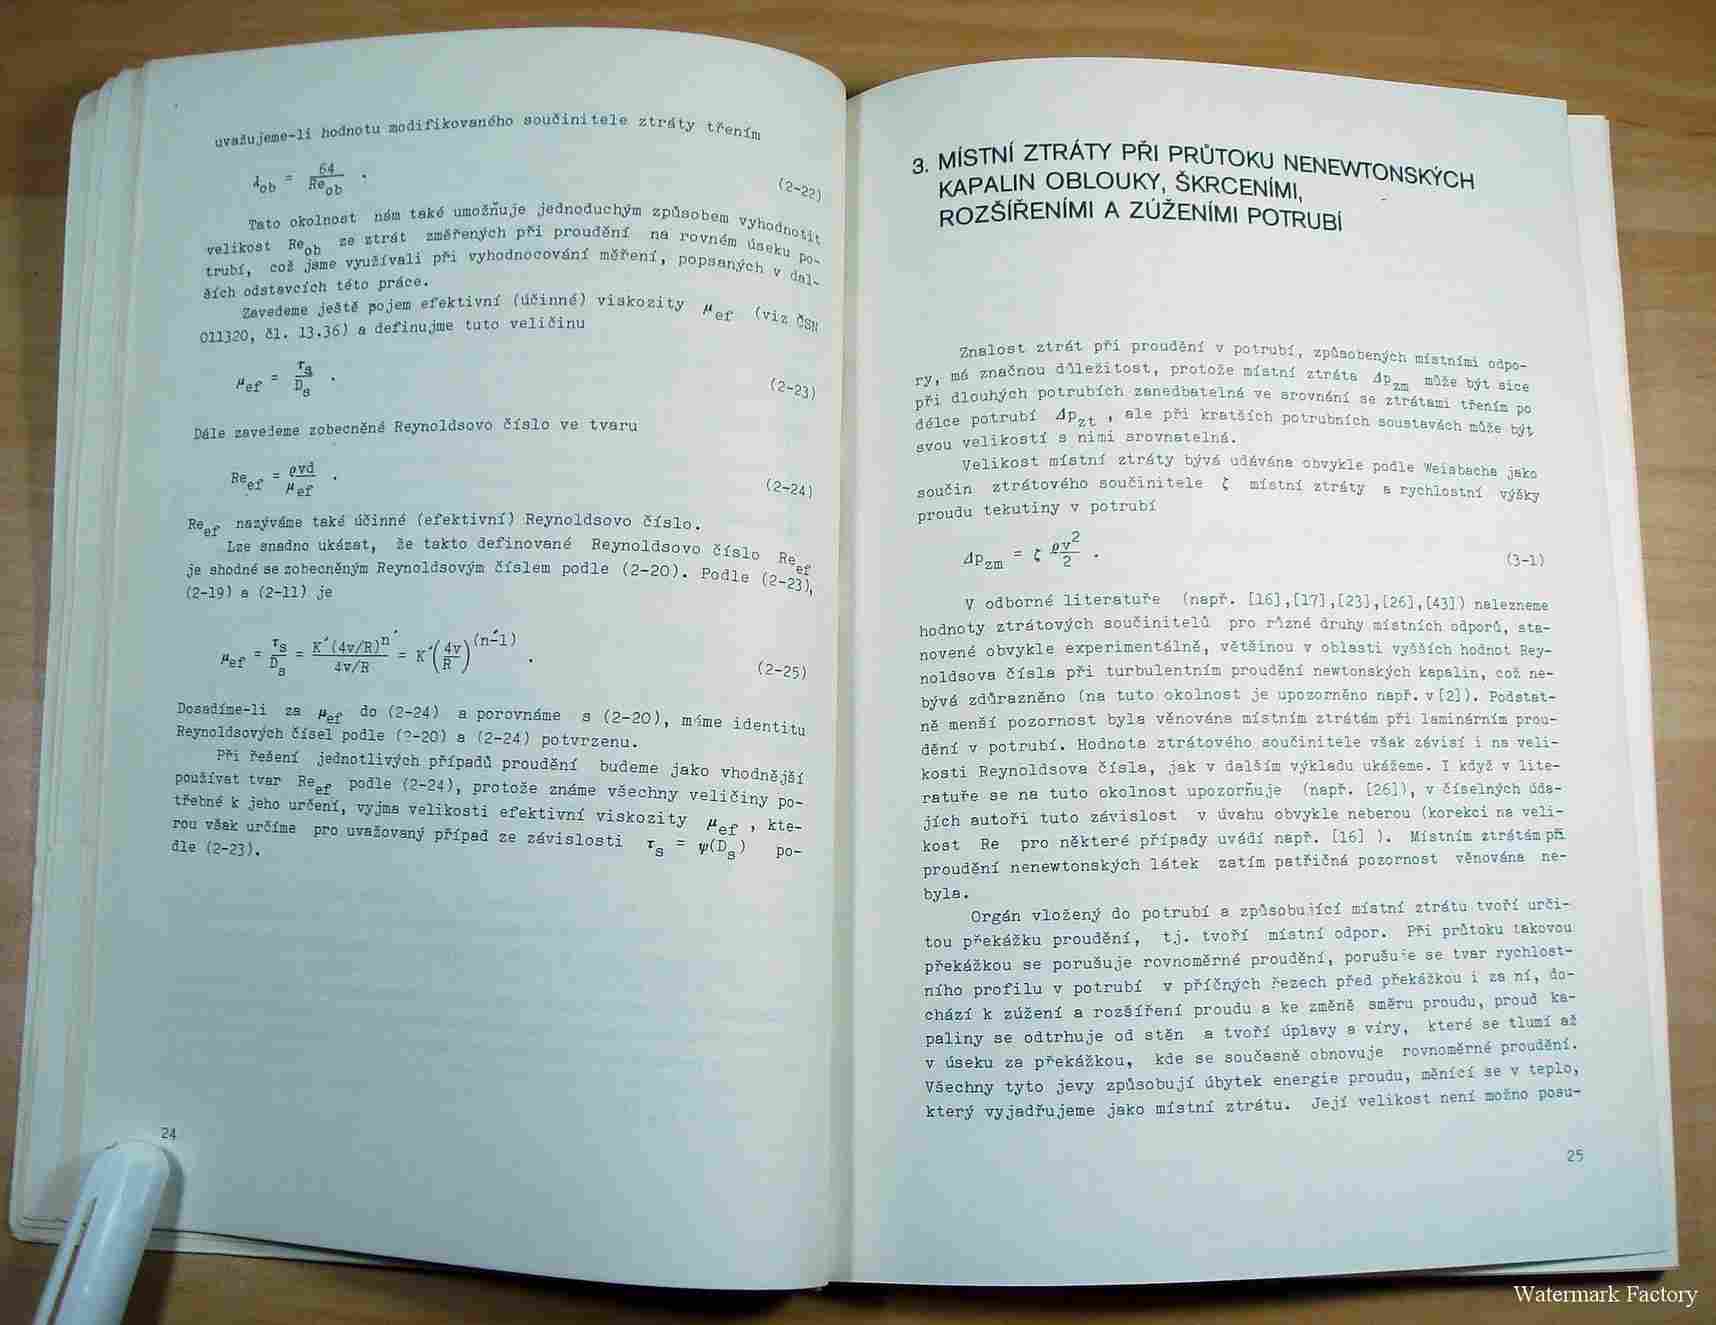 uvažujeme-li hodnotu modifikovaného součinitele ztráty třením
λob = 64 / Reob . (2-22)
Tato okolnost nám také umožňuje jednoduchým způsobem vyhodnotit
velikost Reob ze ztrát změřených při proudění na rovném úseku po-
trubí, což jsme využívali při vyhodnocování měření, popsaných v dal-
ších odstavcích této práce.
Zavedeme ještě pojem efektivní (účinné) viskozity μef (viz ČSN
011320, čl. 13.36) a definujme tuto veličinu
μef = τs / Ds . (2-23)
Dále zavedeme zobecněné Reynoldsovo číslo ve tvaru
Reef = ρvd / μef . (2-24)
Reef nazýváme také účinné (efektivní) Reynoldsovo číslo.
Lze snadno ukázat, že takto definované Reynoldsovo číslo Reef
je shodné se zobecněným Reynoldsovým číslem podle (2-20). Podle (2-23),
(2-19) a (2-11) je
μef = τs / Ds = K´(4v/R)n´ / 4v/R = K´(4v / R)(n´-1) . (2-25)
Dosadíme-li za μef do (2-24) a porovnáme s (2-20), máme identitu
Reynoldsových čísel podle (2-20) a (2-24) potvrzenu.
Při řešení jednotlivých případů proudění budeme jako vhodnější
používat tvar Reef podle (2-24), protože známe všechny veličiny po-
třebné k jeho určení, vyjma velikosti efektivní viskozity μef , kte-
rou však určíme pro uvažovaný případ ze závislosti τs = ψ(Ds) po-
dle (2-23).
24
3. MÍSTNÍ ZTRÁTY PŘI PRŮTOKU NENEWTONSKÝCH
KAPALIN OBLOUKY, ŠKRCENÍMI,
ROZŠÍŘENÍMI A ZÚŽENÍMI POTRUBÍ
Znalost ztrát při proudění v potrubí, způsobených místními odpo-
ry, má značnou důležitost, protože místní ztráta Δpzm může být sice
při dlouhých potrubích zanedbatelná ve srovnání se ztrátami třením po
délce potrubí Δpzt , ale při kratších potrubních soustavách může být
svou velikostí s nimi srovnatelná.
Velikost místní ztráty bývá udávána obvykle podle Weisbacha jako
součin ztrátového součinitele ζ místní ztráty a rychlostní výšky
proudu tekutiny v potrubí
Δpzm = ζ ρv2 / 2 . (3-1)
V odborné literatuře (např. [16],[17],[23],[26],[43]) nalezneme
hodnoty ztrátových součinitelů pro různé druhy místních odporů, sta-
novené obvykle experimentálně, většinou v oblasti vyšších hodnot Rey-
noldsova čísla při turbulentním proudění newtonských kapalin, což ne-
bývá zdůrazněno (na tuto okolnost je upozorněno např. v [2]). Podstat-
ně menší pozornost byla věnována místním ztrátám při laminárním prou-
dění v potrubí. Hodnota ztrátového součinitele však závisí i na veli-
kosti Reynoldsova čísla, jak v dalším výkladu ukážeme. I když v lite-
ratuře se na tuto okolnost upozorňuje (např. [26]), v číselných úda-
jích autoři tuto závislost v úvahu obvykle neberou (korekci na veli-
kost Re pro některé případy uvádí např. [16] ). Místním ztrátám při
proudění nenewtonských látek zatím patřičná pozornost věnována ne-
byla.
Orgán vložený do potrubí a způsobující místní ztrátu tvoří urči-
tou překážku proudění, tj. tvoří místní odpor. Při průtoku takovou
překážkou se porušuje rovnoměrné proudění, porušuje se tvar rychlost-
ního profilu v potrubí v příčných řezech před překážkou i za ní, do-
chází k zúžení a rozšíření proudu a ke změně směru proudu, proud ka-
paliny se odtrhuje od stěn a tvoří úplavy a víry, které se tlumí až
v úseku za překážkou, kde se současně obnovuje rovnoměrné proudění.
Všechny tyto jevy způsobují úbytek energie proudu, měnící se v teplo,
který vyjadřujeme jako místní ztrátu. Její velikost není možno posu-
25
Watermark Factory